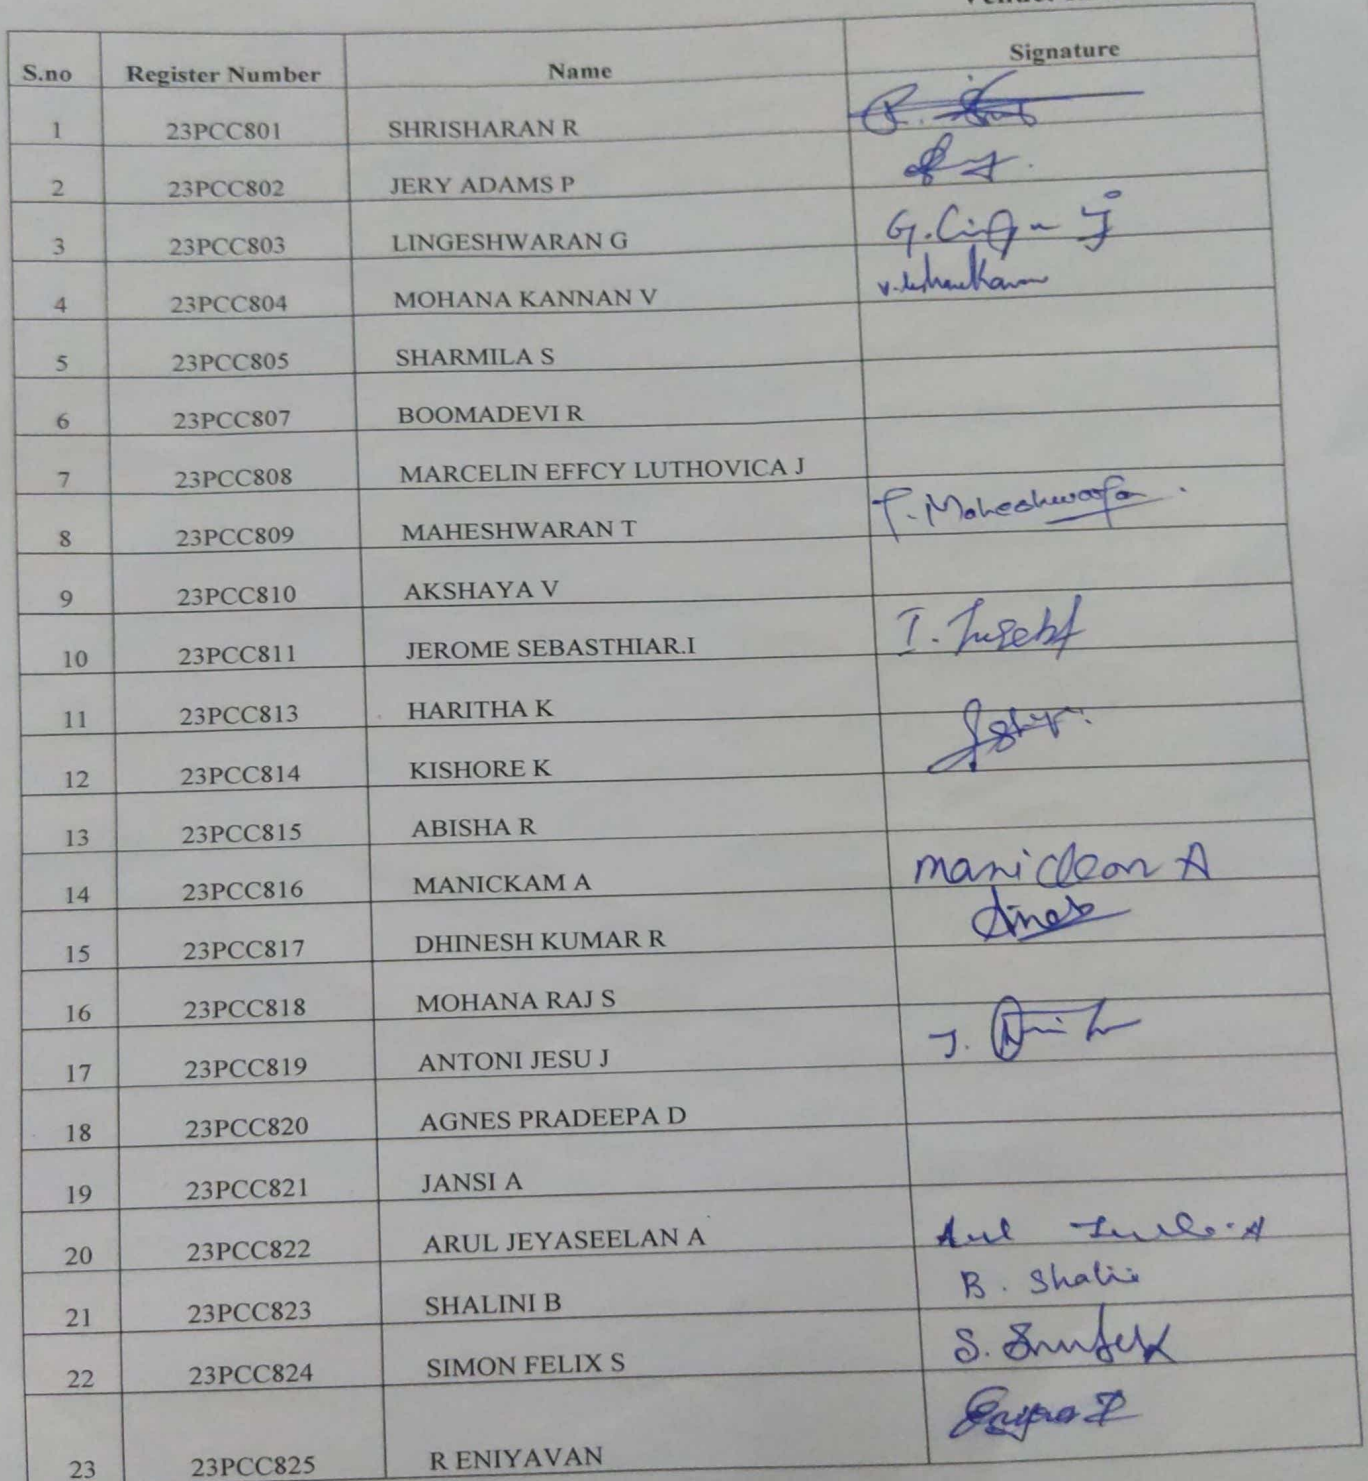 S.no Register Number Name Signature
1 23PCC801 SHRISHARAN R
2 23PCC802 JERY ADAMS P
3 23PCC803 LINGESHWARAN G
4 23PCC804 MOHANA KANNAN V
5 23PCC805 SHARMILA S
6 23PCC807 BOOMADEVI R
7 23PCC808 MARCELIN EFFCY LUTHOVICA J
8 23PCC809 MAHESHWARAN T T. Maheshwaran
9 23PCC810 AKSHAYA V
10 23PCC811 JEROME SEBASTHIAR.I I.
11 23PCC813 HARITHA K
12 23PCC814 KISHORE K
13 23PCC815 ABISHA R
14 23PCC816 MANICKAM A A
15 23PCC817 DHINESH KUMAR R
16 23PCC818 MOHANA RAJ S
17 23PCC819 ANTONI JESU J J.
18 23PCC820 AGNES PRADEEPA D
19 23PCC821 JANSI A
20 23PCC822 ARUL JEYASEELAN A Arul
21 23PCC823 SHALINI B B. Shalini
22 23PCC824 SIMON FELIX S S.
23 23PCC825 R ENIYAVAN